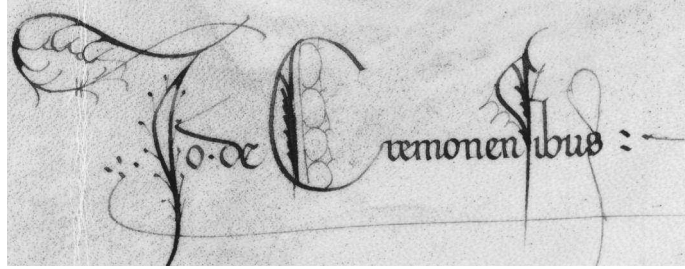 Jo · de Cremonenſibus :-